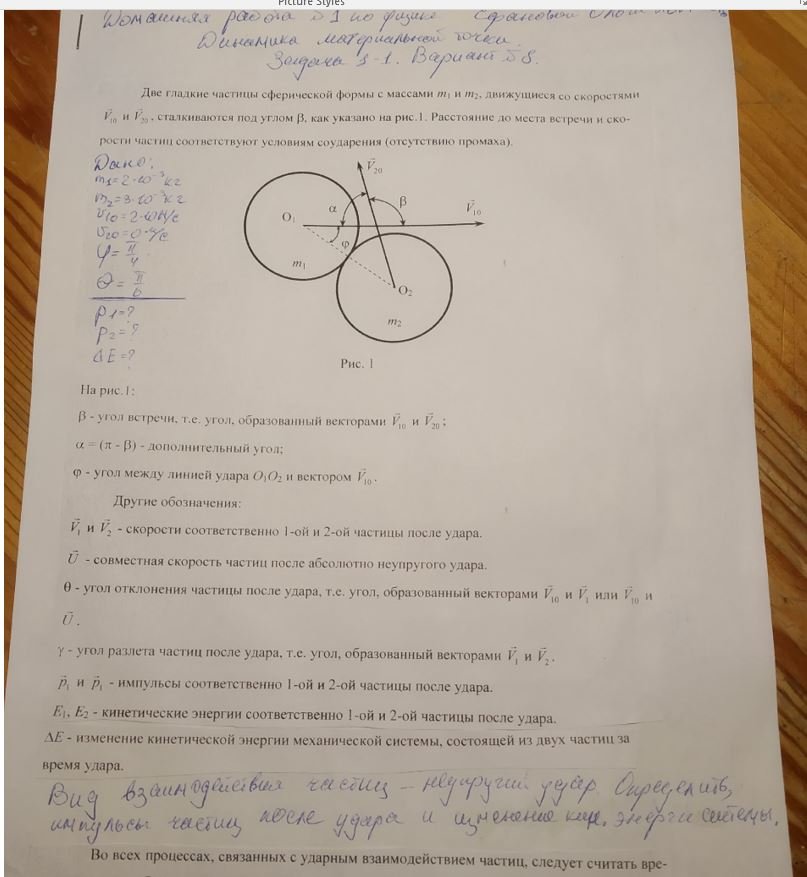 Picture Styles
Домашняя работа №1 по физике
Динамика материальной точки.
Задача 1-1. Вариант №8.
Две гладкие частицы сферической формы с массами m₁ и m₂, движущиеся со скоростями
V⃗₁₀ и V⃗₂₀, сталкиваются под углом β, как указано на рис.1. Расстояние до места встречи и ско-
рости частиц соответствуют условиям соударения (отсутствию промаха).
Дано:
m₁=2·10⁻³кг
m₂=3·10⁻³кг
V₁₀=2·10м/с
V₂₀=0м/с
φ=π/4
θ=π/6
p₁=?
p₂=?
ΔE=?
V⃗₂₀
α
β
V⃗₁₀
O₁
φ
m₁
O₂
m₂
Рис. 1
На рис.1:
β - угол встречи, т.е. угол, образованный векторами V⃗₁₀ и V⃗₂₀;
α = (π - β) - дополнительный угол;
φ - угол между линией удара O₁O₂ и вектором V⃗₁₀.
Другие обозначения:
V⃗₁ и V⃗₂ - скорости соответственно 1-ой и 2-ой частицы после удара.
U⃗ - совместная скорость частиц после абсолютно неупругого удара.
θ - угол отклонения частицы после удара, т.е. угол, образованный векторами V⃗₁₀ и V⃗₁ или V⃗₁₀ и
U⃗.
γ - угол разлета частиц после удара, т.е. угол, образованный векторами V⃗₁ и V⃗₂.
p⃗₁ и p⃗₁ - импульсы соответственно 1-ой и 2-ой частицы после удара.
E₁, E₂ - кинетические энергии соответственно 1-ой и 2-ой частицы после удара.
ΔE - изменение кинетической энергии механической системы, состоящей из двух частиц за
время удара.
Вид взаимодействия частиц – неупругий удар. Определить,
импульсы частиц после удара и изменение кин. энергии системы.
Во всех процессах, связанных с ударным взаимодействием частиц, следует считать вре-